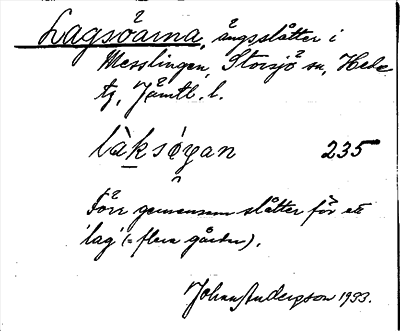 Lagsöarna, ängsslåtter i
Messlingen, Storsjö sn, Hede
tg, Jämtl. l.
làksøyan 235
Förr gemensam slåtter för ett
'lag' (= flera gårdar).
Johan Anderson 1933.